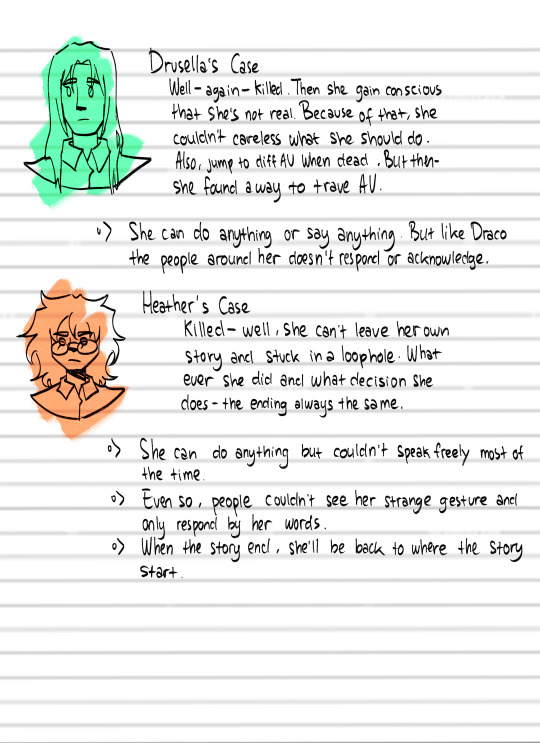 Drusella's Case
Well-again-killed. Then she gain conscious
that she's not real. Because of that, she
couldn't careless what she should do.
Also, jump to diff AU when dead. But then-
she found a way to trave AU.
She can do anything or say anything. But like Draco
the people around her doesn't respond or acknowledge.
Heather's Case
Killed-well, she can't leave her own
story and stuck in a loophole. What
ever she did and what decision she
does-the ending always the same.
She can do anything but couldn't speak freely most of
the time.
Even so, people couldn't see her strange gesture and
only respond by her words.
When the story end, she'll be back to where the story
start.